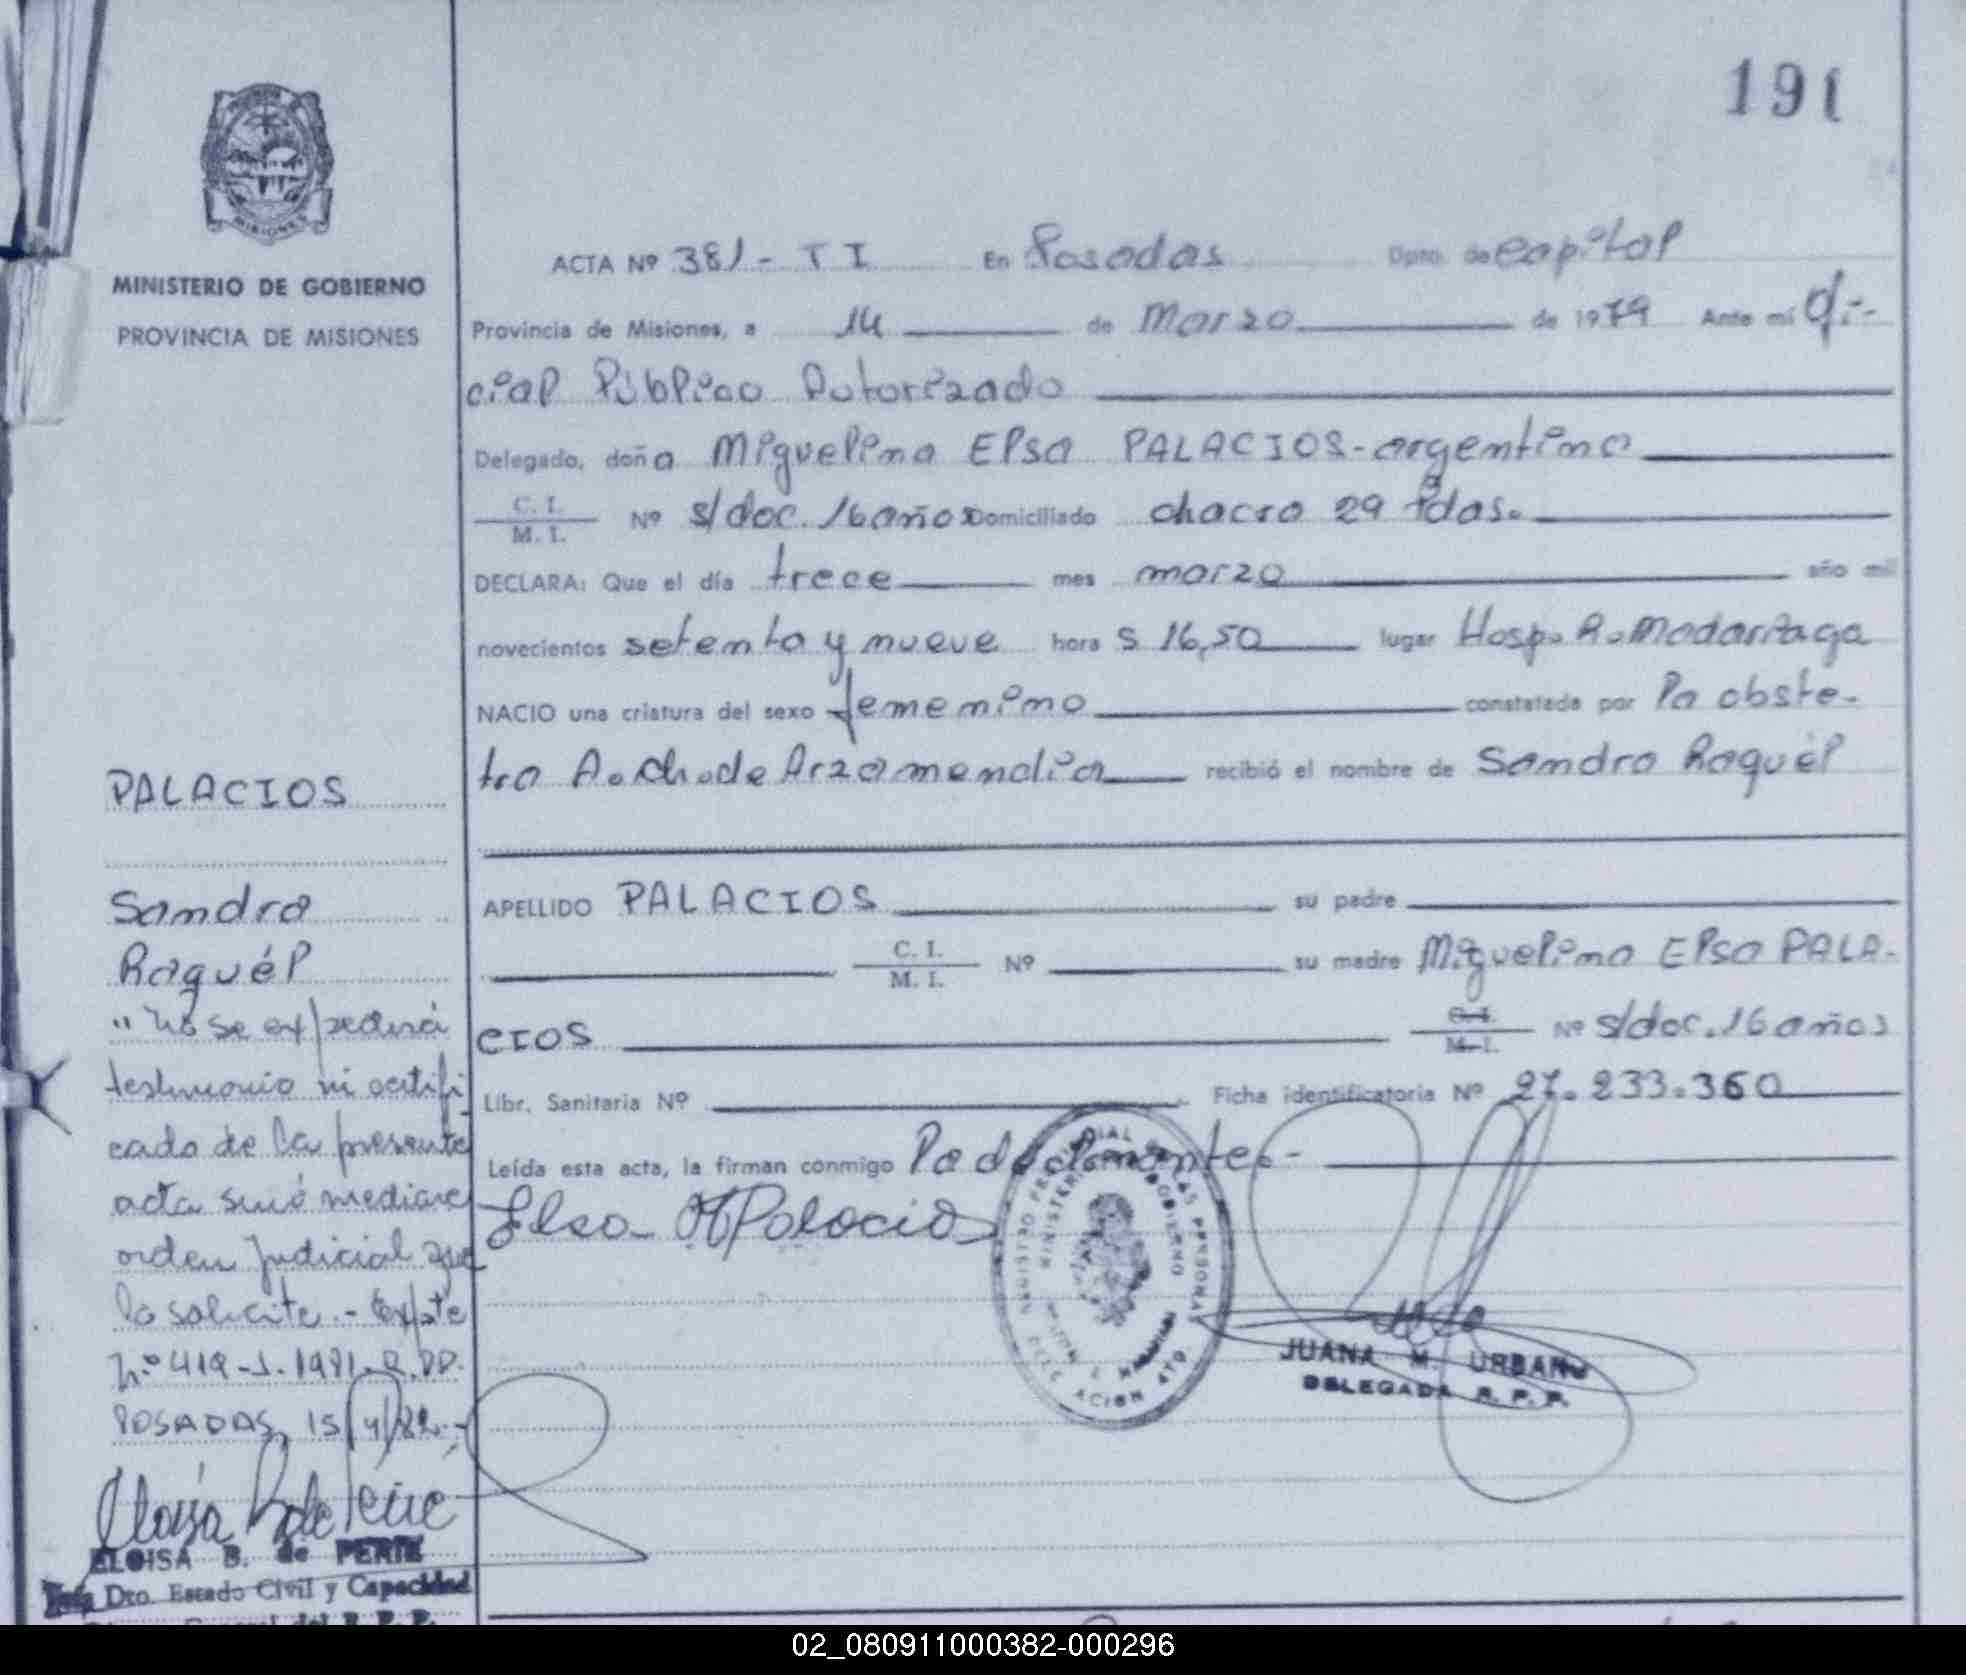 191
MINISTERIO DE GOBIERNO
PROVINCIA DE MISIONES
ACTA Nº 381 - T I En Posadas Dpto. de Capital
Provincia de Misiones, a 14 de Marzo de 1979 Ante mí Ofi-
cial Público Autorizado
Delegado, doña Miguelina Elsa PALACIOS - argentina
C. I.
M. I. Nº s/doc. 16 años Domiciliado chacra 29 Pdas.
DECLARA: Que el día trece mes marzo año mil
novecientos setenta y nueve hora s 16,50 lugar Hosp. R. Madariaga
NACIO una criatura del sexo femenino constatada por la obste-
tra A. Ch. de Arzamendia recibió el nombre de Sandra Raquél
APELLIDO PALACIOS su padre
C. I.
M. I. Nº su madre Miguelina Elsa PALA-
CIOS C. I.
M. I. Nº s/doc. 16 años
Libr. Sanitaria Nº Ficha identificatoria Nº 27.233.360
Leída esta acta, la firman conmigo la declarante.-
Elsa M Palacios
JUANA M. URBANO
DELEGADA R. P. P.
PALACIOS
Sandra
Raquél
"No se expedirá
testimonio ni certifi
cado de la presente
acta sinó mediare
orden judicial que
lo solicite.- Expte
Nº 419-J-1981-R.PP.
POSADAS, 15/4/82.-
ELOISA B. de PERIE
Dto. Estado Civil y Capacidad
General del R. P. P.
02_080911000382-000296